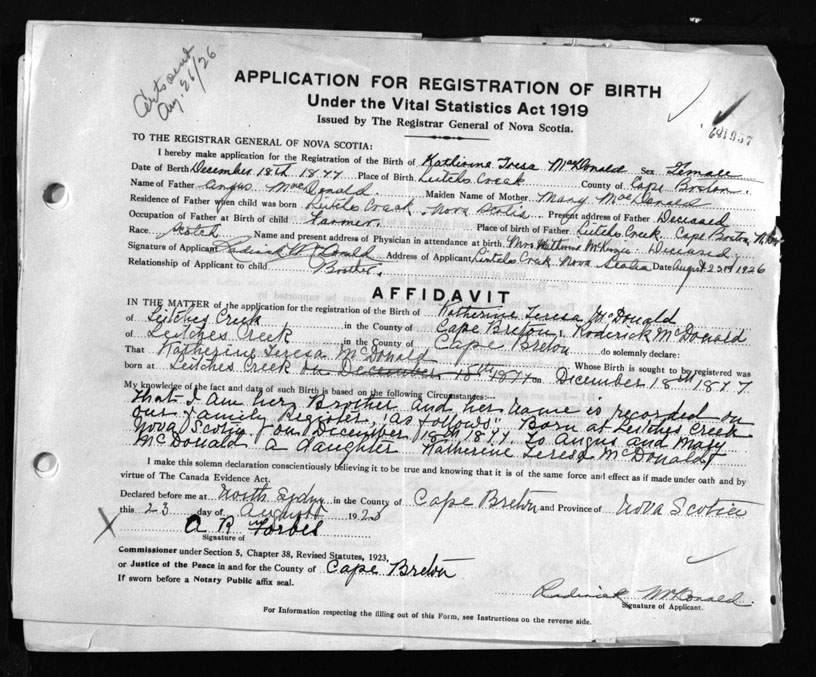 Certs sent
Aug 26/26
APPLICATION FOR REGISTRATION OF BIRTH
Under the Vital Statistics Act 1919
Issued by The Registrar General of Nova Scotia.
TO THE REGISTRAR GENERAL OF NOVA SCOTIA:
I hereby make application for the Registration of the Birth of Katherine Tresa McDonald Sex Female
Date of Birth December 18th 1877 Place of Birth Leitchs Creek County of Cape Breton.
Name of Father Angus McDonald Maiden Name of Mother Mary McDonald
Residence of Father when child was born Leitchs Creek Nova Scotia Present address of Father Deceased
Occupation of Father at Birth of child Farmer. Place of birth of Father Leitchs Creek Cape Breton
Race Scotch Name and present address of Physician in attendance at birth Mrs. Deceased
Signature of Applicant Roderick McDonald Address of Applicant Leitchs Creek Nova Scotia Date August 23rd 1926
Relationship of Applicant to child Brother.
AFFIDAVIT
IN THE MATTER of the application for the registration of the Birth of Katherine Teresa McDonald
of Leitches Creek in the County of Cape Breton I, Roderick McDonald
of Leitches Creek in the County of Cape Breton do solemnly declare:
That Katherine Teresa McDonald Whose Birth is sought to be registered was
born at Leitches Creek on December 18th 1877 on December 18th 1877
My knowledge of the fact and date of such Birth is based on the following Circumstances:—
That I am her Brother and her name is recorded on
our Family Register, as follows: Born at Leitches Creek
Nova Scotia on December 18th 1877. to Angus and Mary
McDonald a daughter Katherine Teresa McDonald
I make this solemn declaration conscientiously believing it to be true and knowing that it is of the same force and effect as if made under oath and by
virtue of The Canada Evidence Act.
Declared before me at North Sydney in the County of Cape Breton and Province of Nova Scotia
this 23 day of August 1926
A R Forbes
Signature of
Commissioner under Section 5, Chapter 38, Revised Statutes, 1923,
or Justice of the Peace in and for the County of Cape Breton
If sworn before a Notary Public affix seal.
Roderick McDonald.
Signature of Applicant.
For Information respecting the filling out of this Form, see Instructions on the reverse side.